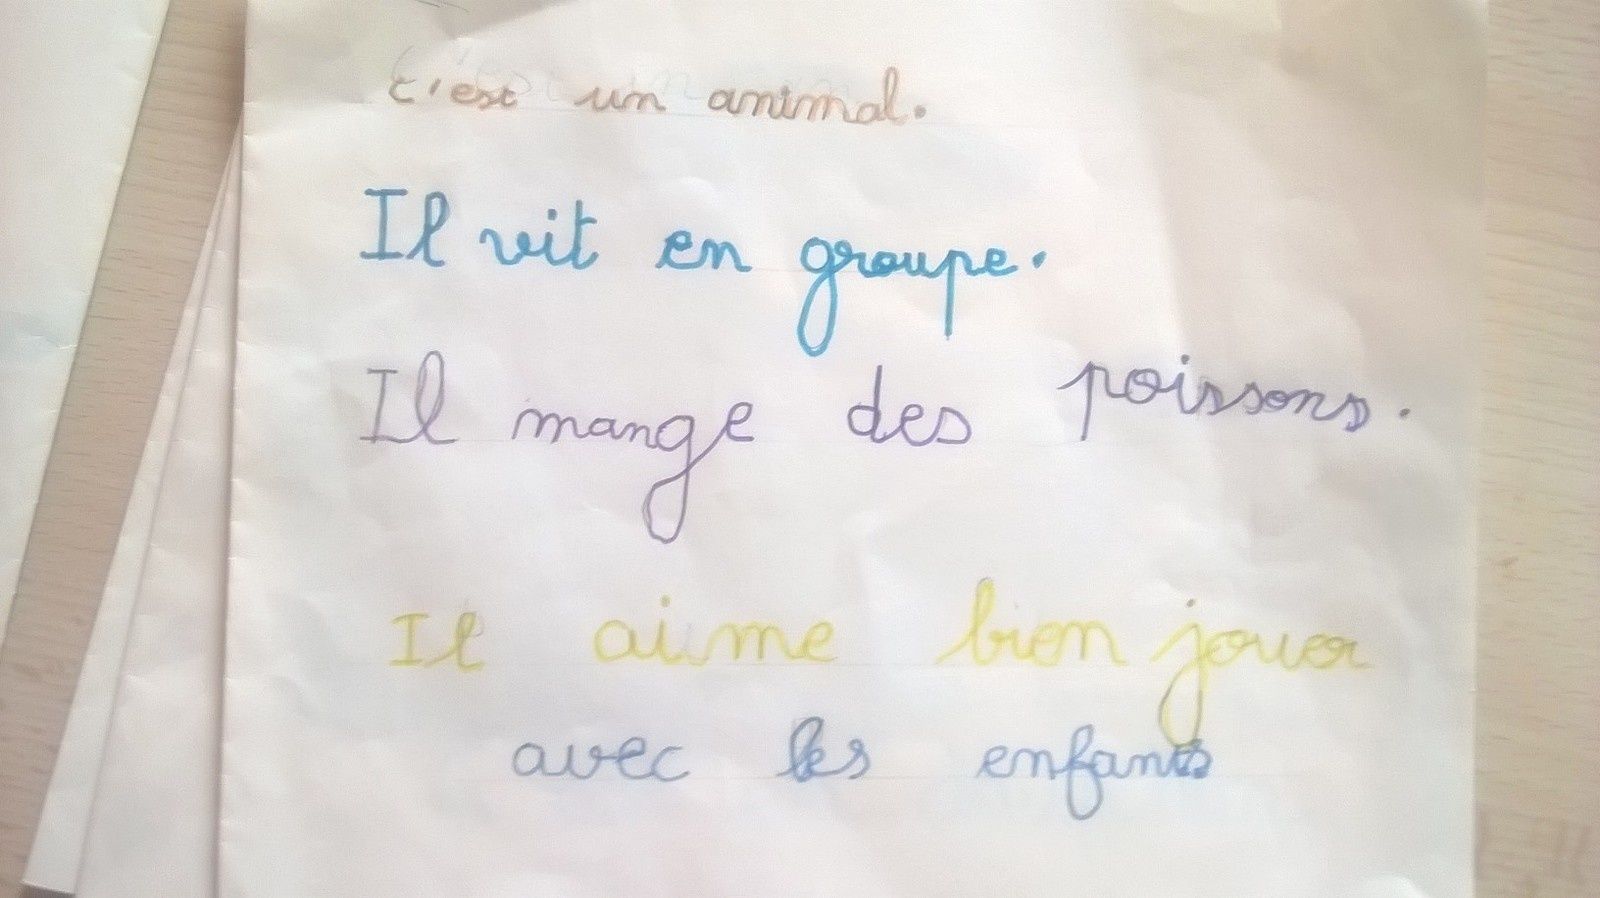 c'est un animal.
Il vit en groupe.
Il mange des poissons.
Il aime bien jouer
avec les enfants